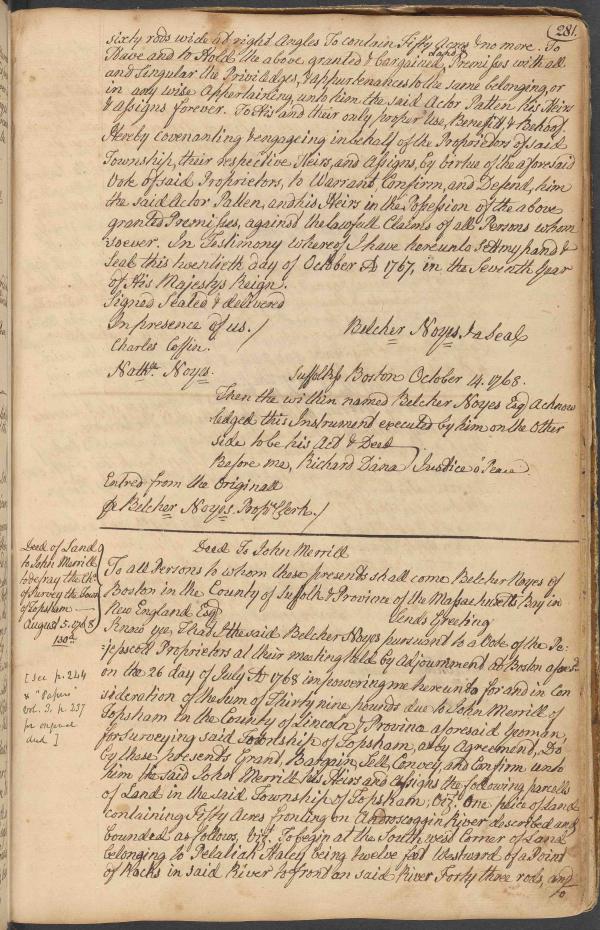 281.
sixty rods wide at right Angles To contain Fifty Acres & no more. To
Have and to Hold the above granted & bargained Land & Premisses with all
and singular the Priviledges, & appurtenances to the same belonging, or
in any wise Appertaining, unto him the said Actor Patten his Heirs
& assigns forever. To His and their only proper Use, Benefitt & Behoof
Hereby Covenanting & engageing in behalf of the Proprietors of said
Township, their respective Heirs, and Assigns, by virtue of the aforesaid
Vote of said Proprietors, to Warrant, Confirm, and Defend, him
the said Actor Patten, and his Heirs in the Possession of the above
granted Premisses, against the lawfull Claims of all Persons whom
soever. In Testimony whereof I have hereunto sett my hand &
Seal this twentieth day of October AD 1767, in the Seventh Year
of His Majestys Reign.
Signed Sealed & delivered
In presence of us. /
Belcher Noyes & a Seal
Charles Coffin.
Nathll. Noyes.
Suffolk ss Boston October 14. 1768.
Then the within named Belcher Noyes Esq Acknow
ledged this Instrument executed by him on the other
side to be his Act & Deed
Before me, Richard Dana Justice o Peace
Entred from the Originall
Belcher Noyes. Prop. Clerk. /
Deed of Land
to John Merrill
to defray the Ch
of Survey the Town
of Topsham
August 5. 1768
130
[See p. 244
& "Papers"
Vol. 3, p. 257
for original
deed]
Deed To John Merrill
To all Persons to whom these presents shall come Belcher Noyes of
Boston in the County of Suffolk & Province of the Massachusetts Bay in
New England Esq Sends Greeting
Know ye, That I the said Belcher Noyes pursuant to a Vote of the Pe-
jepscott Proprietors at their meeting held by Adjournment at Boston afores.
on the 26 day of July AD 1768 impowering me hereunto for and in Con
sideration of the Sum of Thirty nine pounds due to John Merrill of
Topsham in the County of Lincoln & Province aforesaid Yeoman,
for surveying said Township of Topsham, as by Agreement, Do
by these presents Grant, Bargain, Sell, Convey, and Confirm unto
him the said John Merrill his Heirs and Assigns the following parcells
of Land in the said Township of Topsham, Viz. One piece of land
containing Fifty Acres fronting on Androscoggin River described and
bounded as follows, Viz. To begin at the South west Corner of Land
belonging to Pelatiah Haley being twelve feet Westward of a Point
of Rocks in said River to front on said River Forty three rods, and
to